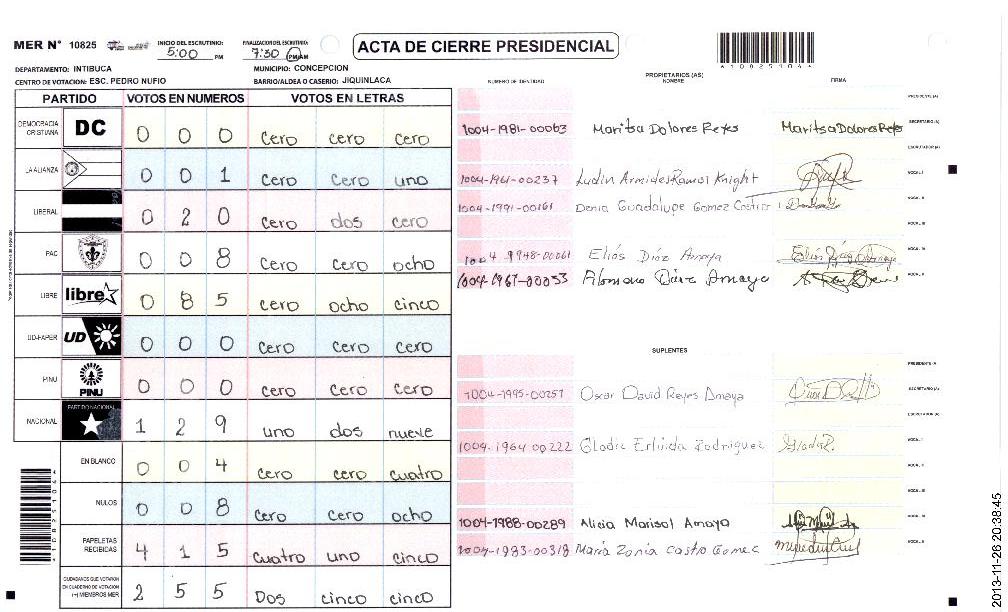 MER N° 10825 INICIO DEL ESCRUTINIO: 5:00 PM FINALIZACION DEL ESCRUTINIO: 7:30 PM/AM ACTA DE CIERRE PRESIDENCIAL
*108251044*
DEPARTAMENTO: INTIBUCA MUNICIPIO: CONCEPCION
CENTRO DE VOTACION: ESC. PEDRO NUFIO BARRIO/ALDEA O CASERIO: JIQUINLACA
PARTIDO VOTOS EN NUMEROS VOTOS EN LETRAS
DEMOCRACIA CRISTIANA DC 0 0 0 cero cero cero
LA ALIANZA 0 0 1 cero cero uno
LIBERAL 0 2 0 cero dos cero
PAC 0 0 8 cero cero ocho
LIBRE libre 0 8 5 cero ocho cinco
UD-FAPER UD 0 0 0 cero cero cero
PINU PINU 0 0 0 cero cero cero
NACIONAL PARTIDO NACIONAL 1 2 9 uno dos nueve
EN BLANCO 0 0 4 cero cero cuatro
NULOS 0 0 8 cero cero ocho
PAPELETAS RECIBIDAS 4 1 5 cuatro uno cinco
CIUDADANOS QUE VOTARON EN CUADERNO DE VOTACION (+) MIEMBROS MER 2 5 5 Dos cinco cinco
NUMERO DE IDENTIDAD PROPIETARIOS (AS) NOMBRE FIRMA
PRESIDENTE (A)
1004-1981-00063 Maritsa Dolores Reyes Maritsa Dolores Reyes SECRETARIO (A)
ESCRUTADOR (A)
1004-1961-00237 Ludin Armides Ramos Knight VOCAL I
1004-1991-00161 Denia Guadalupe Gomez Castro VOCAL II
VOCAL III
1004 1948-00061 Elías Díaz Amaya VOCAL IV
1004-1967-00053 Alonso Díaz Amaya VOCAL V
SUPLENTES
PRESIDENTE (A)
1004-1995-00257 Oscar David Reyes Amaya SECRETARIO (A)
ESCRUTADOR (A)
1004-1964-00222 Gladis Erlinda Rodriguez VOCAL I
VOCAL II
VOCAL III
1004-1988-00289 Alicia Marisol Amaya VOCAL IV
1004-1983-00318 María Zonia Castro Gomez VOCAL V
2013-11-26 20:38:45